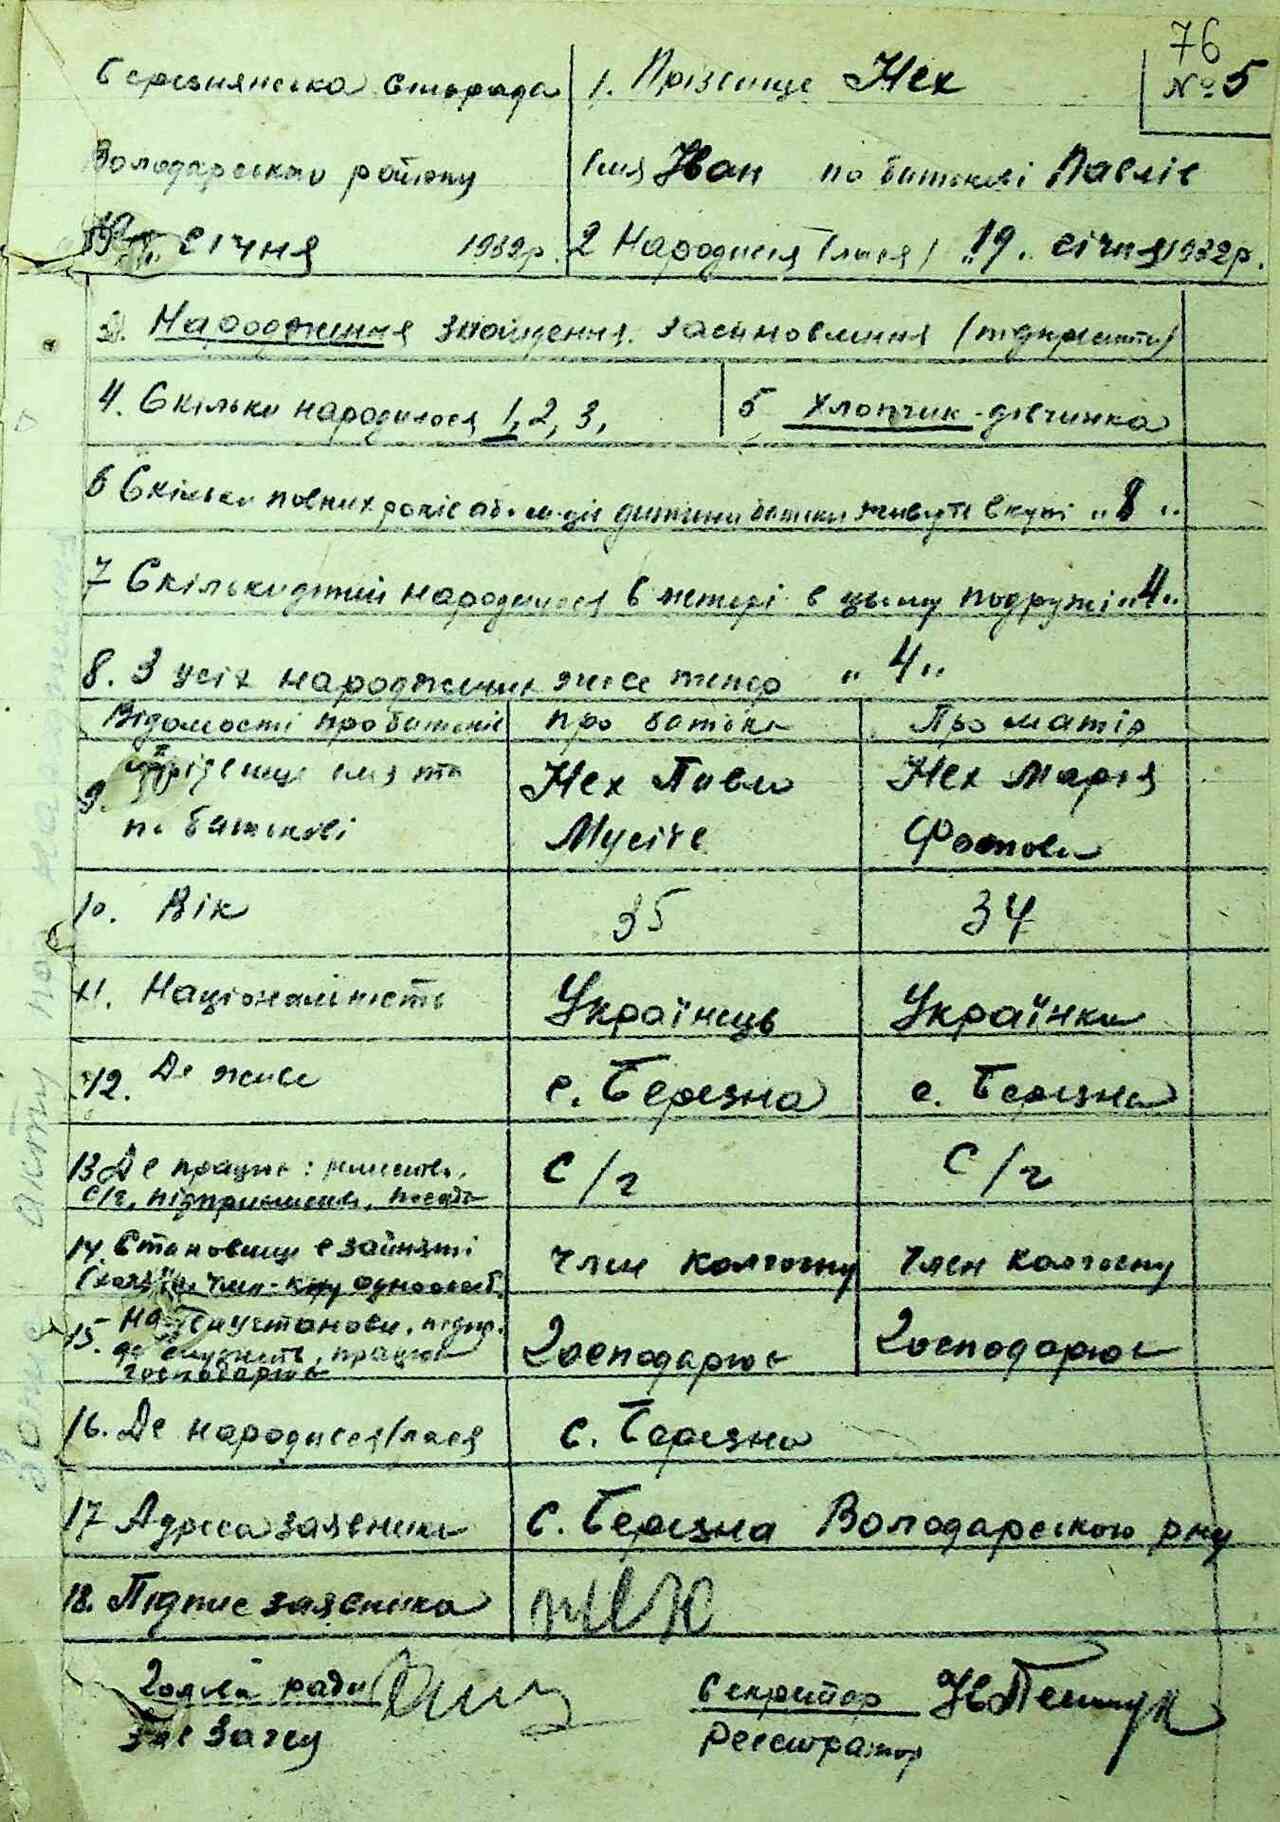 76
Березнянська сільрада
1. Прізвище Нех
№ 5
Володарського району
імя Іван по батькові Павлів
19 січня 1932р.
2 Народився /лася/ "19" січня 1932р.
3. Народження знайдення засиновлення (підкреслити)
4. Скільки народилося 1, 2, 3,
5 хлопчик - дівчинка
6 Скільки повних років дитини батьки живуть вкупі "8"
7 Скільки дітей народилося в матері в цьому подружі "4"
8. З усіх народжених живе тепер "4"
Відомості про батьків
про батька
Про матір
9. Прізвище імя та
по батькові
Нех Павло
Мусіїв
Нех Марія
Фотова
10. Вік
35
34
11. Національність
Українець
Українка
12. Де живе
с. Березна
с. Березна
13 Де працює:
с/г, підприємство, посада
С/г
С/г
14. Становище в занятті
член колгоспу
Член колгоспу
15. Назва установи, підпр.
де служить, працює
господарює
Господарює
Господарює
16. Де народився/лася
с. Березна
17 Адреса заявника
с. Березна Володарського рну
18. Підпис заявника
нех
Голова ради
Зав Загсу
Секретар
Реєстратор
Запис акту по